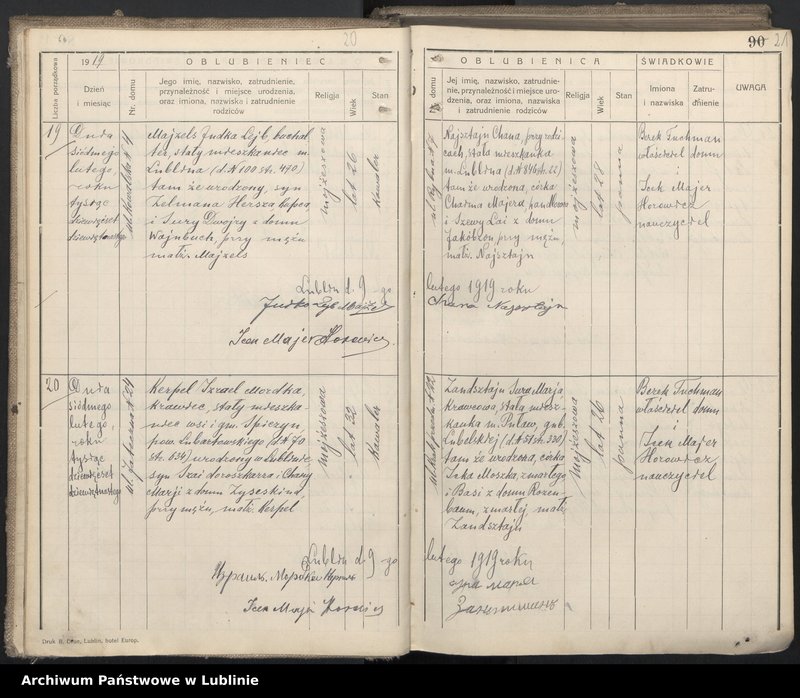 20
90 21
Liczba porządkowa
1919
Dzień
i miesiąc
Nr. domu
OBLUBIENIEC
Jego imię, nazwisko, zatrudnienie,
przynależność i miejsce urodzenia,
oraz imiona, nazwiska i zatrudnienie
rodziców
Religja
Wiek
Stan
19
Dnia
siódmego
lutego,
roku
tysiąc
dziewięćset
dziewiętnastego
Majzels Judka Lejb buchal
ter, stały mieszkaniec m.
Lublina (d. N 100 str. 490)
tam że urodzony, syn
Zelmana Hersza kupca
i Sury Dwojry z domu
Wajnbuch, przy mężu
małż. Majzels
mojżeszowa
lat 26
kawaler
Lublin d. 9-go
Judko Lejb Majzels
Icek Majer Horowicz
20
Dnia
siódmego
lutego,
roku
tysiąc
dziewięćset
dziewiętnastego
Kerpel Izrael Mordka,
krawiec, stały mieszka-
niec wsi i gm. Spiczyn,
pow. Lubartowskiego (d. N 70
str. 634) urodzony w Lublinie
syn Szai doroszkarza i Chany
Marji z domu Zyseskind,
przy mężu, małż. Kerpel
mojżeszowa
lat 32
kawaler
Lublin d. 9-go
Icek Majer Horowicz
Druk B. Cłon, Lublin, hotel Europ.
Nr. domu
OBLUBIENICA
Jej imię, nazwisko, zatrudnie-
nie, przynależność i miejsce uro-
dzenia, oraz imiona, nazwiska
i zatrudnienie rodziców
Religja
Wiek
Stan
ŚWIADKOWIE
Imiona
i nazwiska
Zatru-
dnienie
UWAGA
Najsztajn Chana, przy rodzi-
cach, stała mieszkanka
m. Lublina (d. N 846 str. 22)
tam że urodzona, córka
Chaima Majera
i Szewy Łai z domu
Jakobzon przy mężu,
małż. Najsztajn
mojżeszowa
lat 28
panna
Berek Tuchman
właściciel domu
i
Icek Majer
Horowicz
nauczyciel
lutego 1919 roku
Zandsztajn Sura Marja,
krawcowa, stała miesz-
kanka m. Puław, gub.
Lubelskiej (d. N 51 str. 330)
tam że urodzona, córka
Icka Moszka, zmarłego
i Basi z domu Rozen-
baum, zmarłej, małż.
Zandsztajn
mojżeszowa
lat 26
panna
Berek Tuchman
właściciel domu
i
Icek Majer
Horowicz
nauczyciel
lutego 1919 roku
Archiwum Państwowe w Lublinie